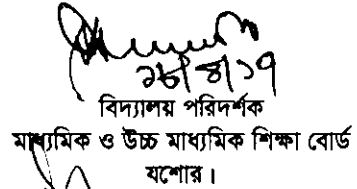 ২৮/৪/১৭
বিদ্যালয় পরিদর্শক
মাধ্যমিক ও উচ্চ মাধ্যমিক শিক্ষা বোর্ড
যশোর।